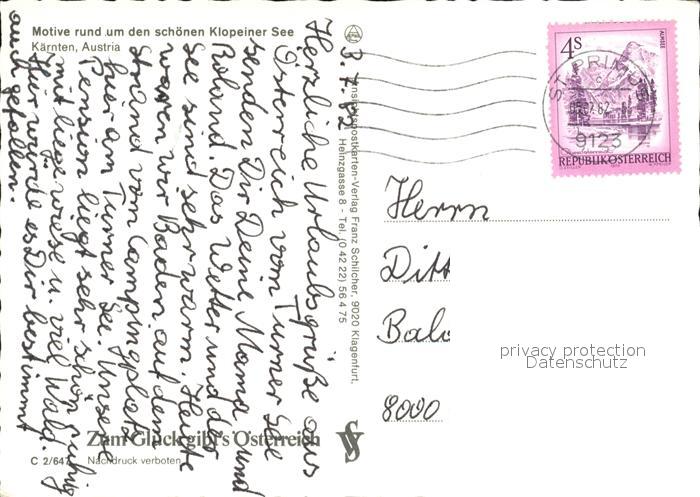 Motive rund um den schönen Klopeiner See
Kärnten, Austria
3.7.82
Herzliche Urlaubsgrüße aus
Österreich vom Turner See
senden Dir Deine Mama und
Roland. Das Wetter und der
See sind sehr warm. Heute
waren wir Baden auf dem
Strand vom Campingplatz
hier am Turner See. Unsere
Pension liegt sehr schön ruhig
mit Liegewiese u. viel Wald.
Hier würde es Dir bestimmt
auch gefallen.
Zum Glück gibt's Österreich
C 2/647
Nachdruck verboten
Ansichtspostkarten-Verlag Franz Schilcher, 9020 Klagenfurt,
Heinzgasse 8 - Tel. (0 42 22) 56 4 75
4S
ALMSEE
ST. PRIMUS
9123
REPUBLIK ÖSTERREICH
Herrn
Ditt
8000
privacy protection
Datenschutz